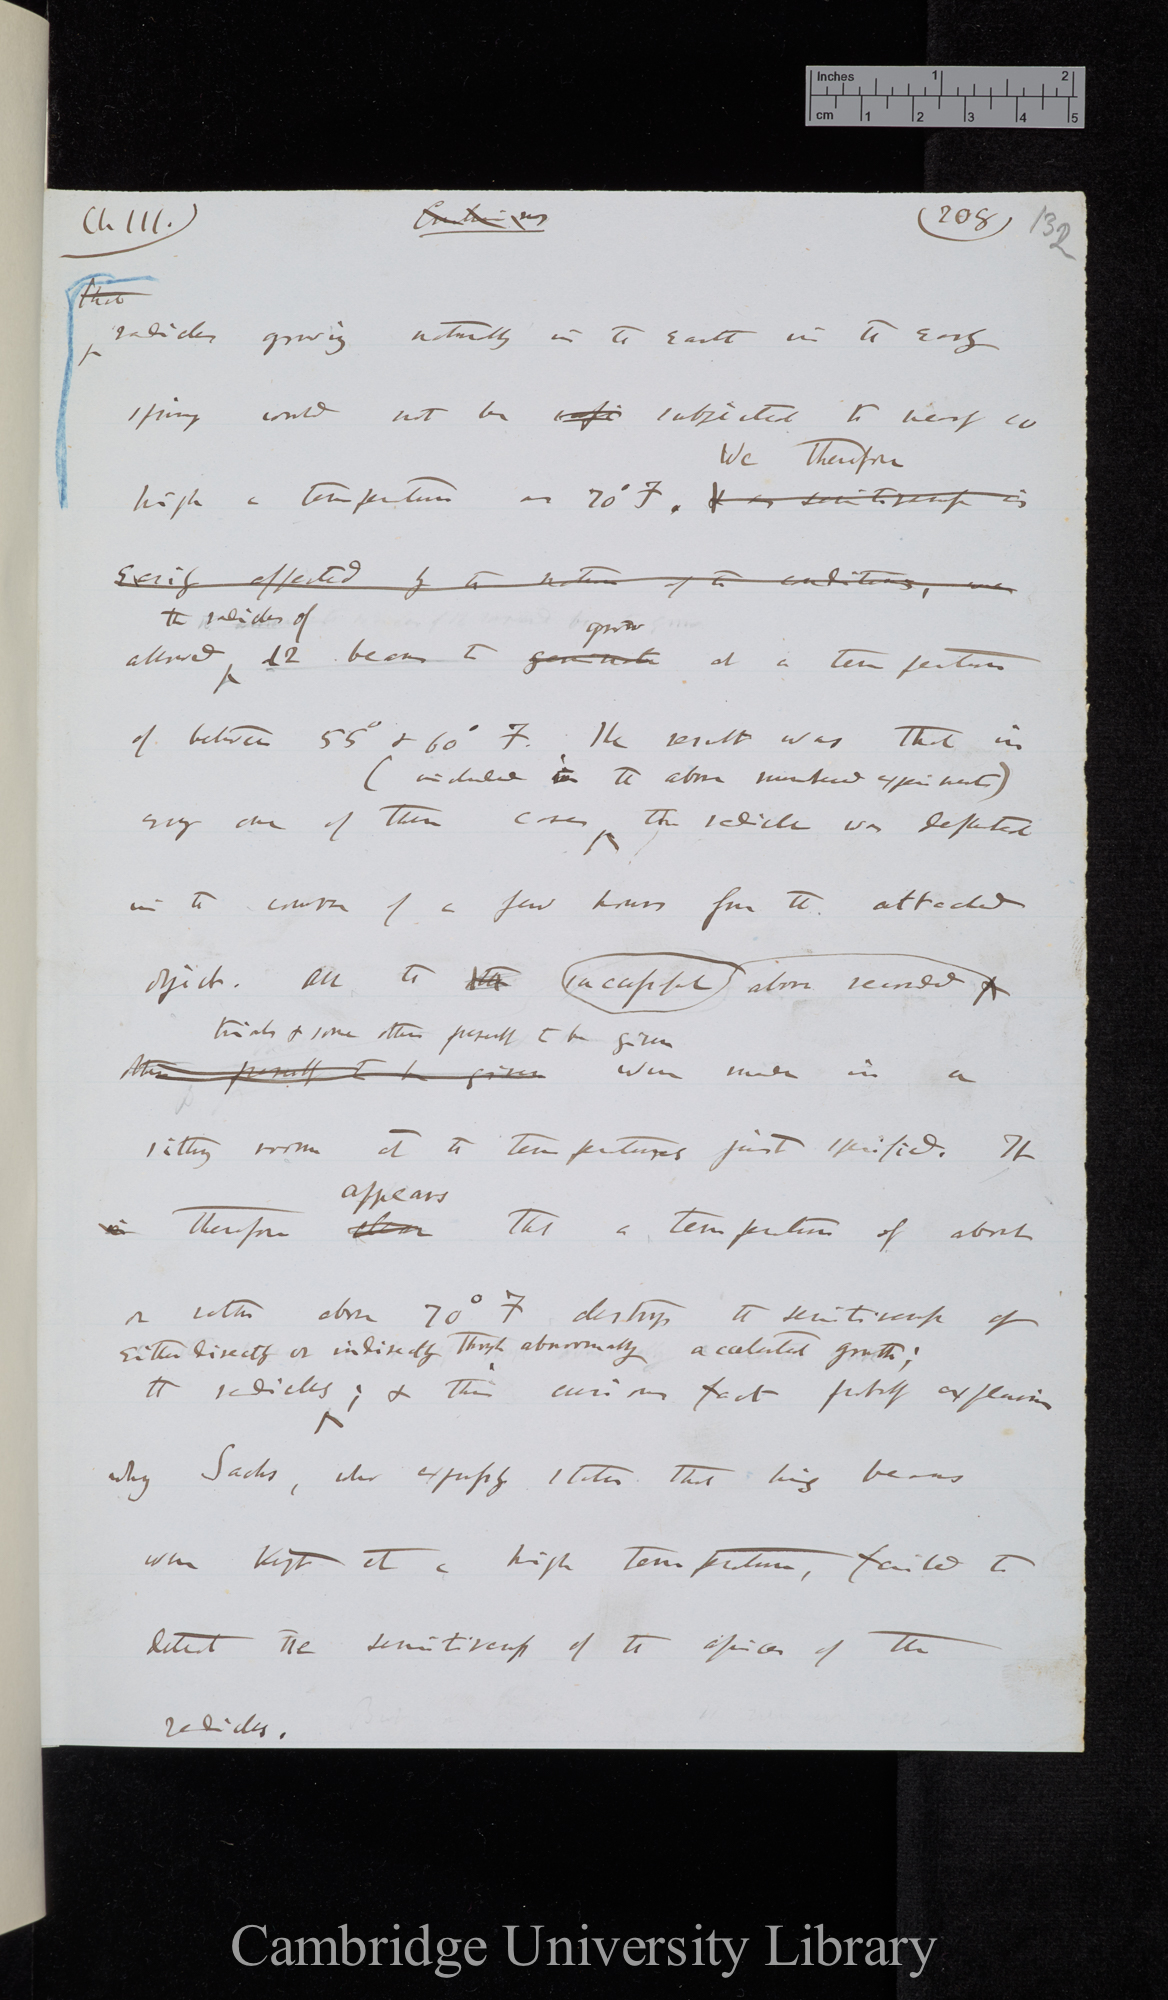 Inches 1 2
cm 1 2 3 4 5
Ch III.)
(208) 132
that
radicles growing naturally in the earth in the early
spring would not be subjected to nearly so
We therefore
high a temperature as 70° F. & as sensitiveness is
easily affected by the nature of the conditions, we
the radicles of grow
allowed 12 beans to germinate at a temperature
of between 55° & 60° F. The result was that in
(included in the above numbered experiments)
every one of these cases the radicle was deflected
in the course of a few hours from the attached
object. All the successful above recorded
trials & some others presently to be given
others presently to be given were made in a
sitting room at the temperatures just specified. It
appears
is therefore clear that a temperature of about
or rather above 70° F destroys the sensitiveness of
either directly or indirectly through abnormally accelerated growth;
the radicles; & this curious fact probably explains
why Sachs, who expressly states that his beans
were kept at a high temperature, failed to
detect the sensitiveness of the apices of the
radicles.
Cambridge University Library